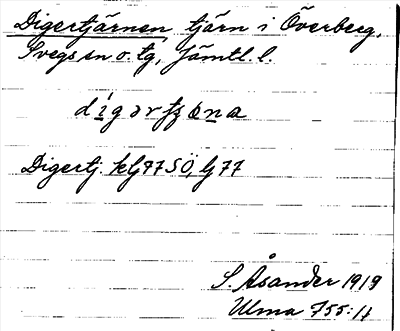 Digertjärnen tjärn i Överberg,
Svegs sn o. tg, Jämtl. l.
Digertj. klj 77 SÖ, lj 77
S. Åsander 1919
Ulma 755:11